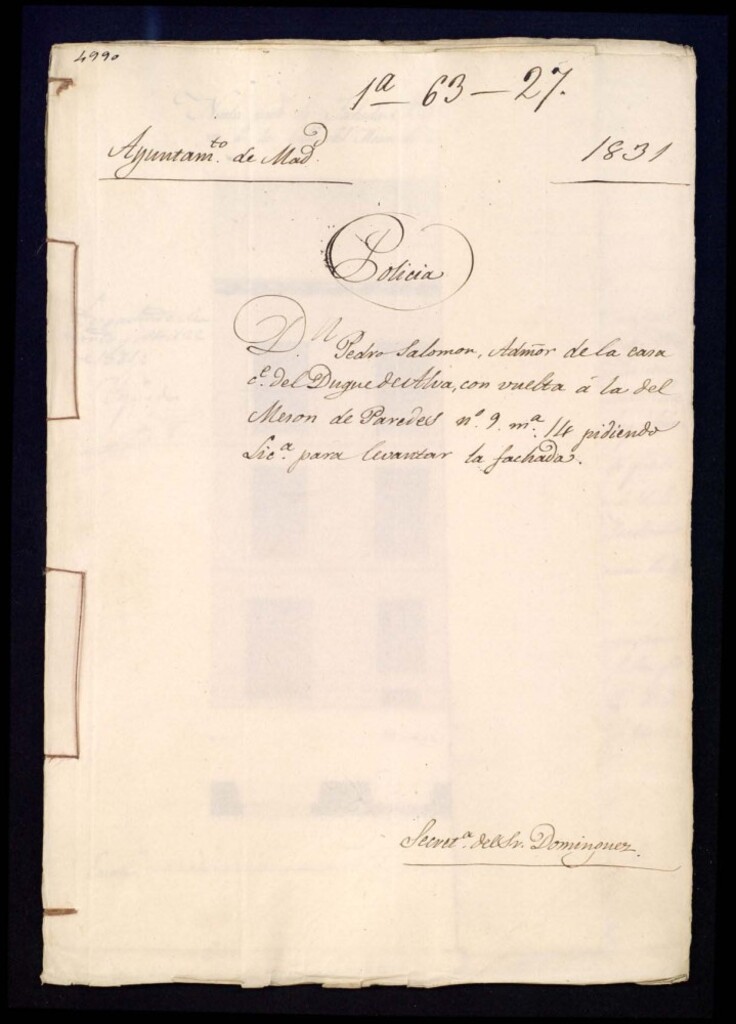 4990
1ª – 63 – 27.
Ayuntam.to de Mad.d
1831
Policia
D.n Pedro Salomon, Admõr de la casa
c.e del Duque de Alva, con vuelta á la del
Meson de Paredes n.º 9. m.ª 14 pidiendo
Lic.ª para levantar la fachada.
Secret.ª del Sr. Dominguez.